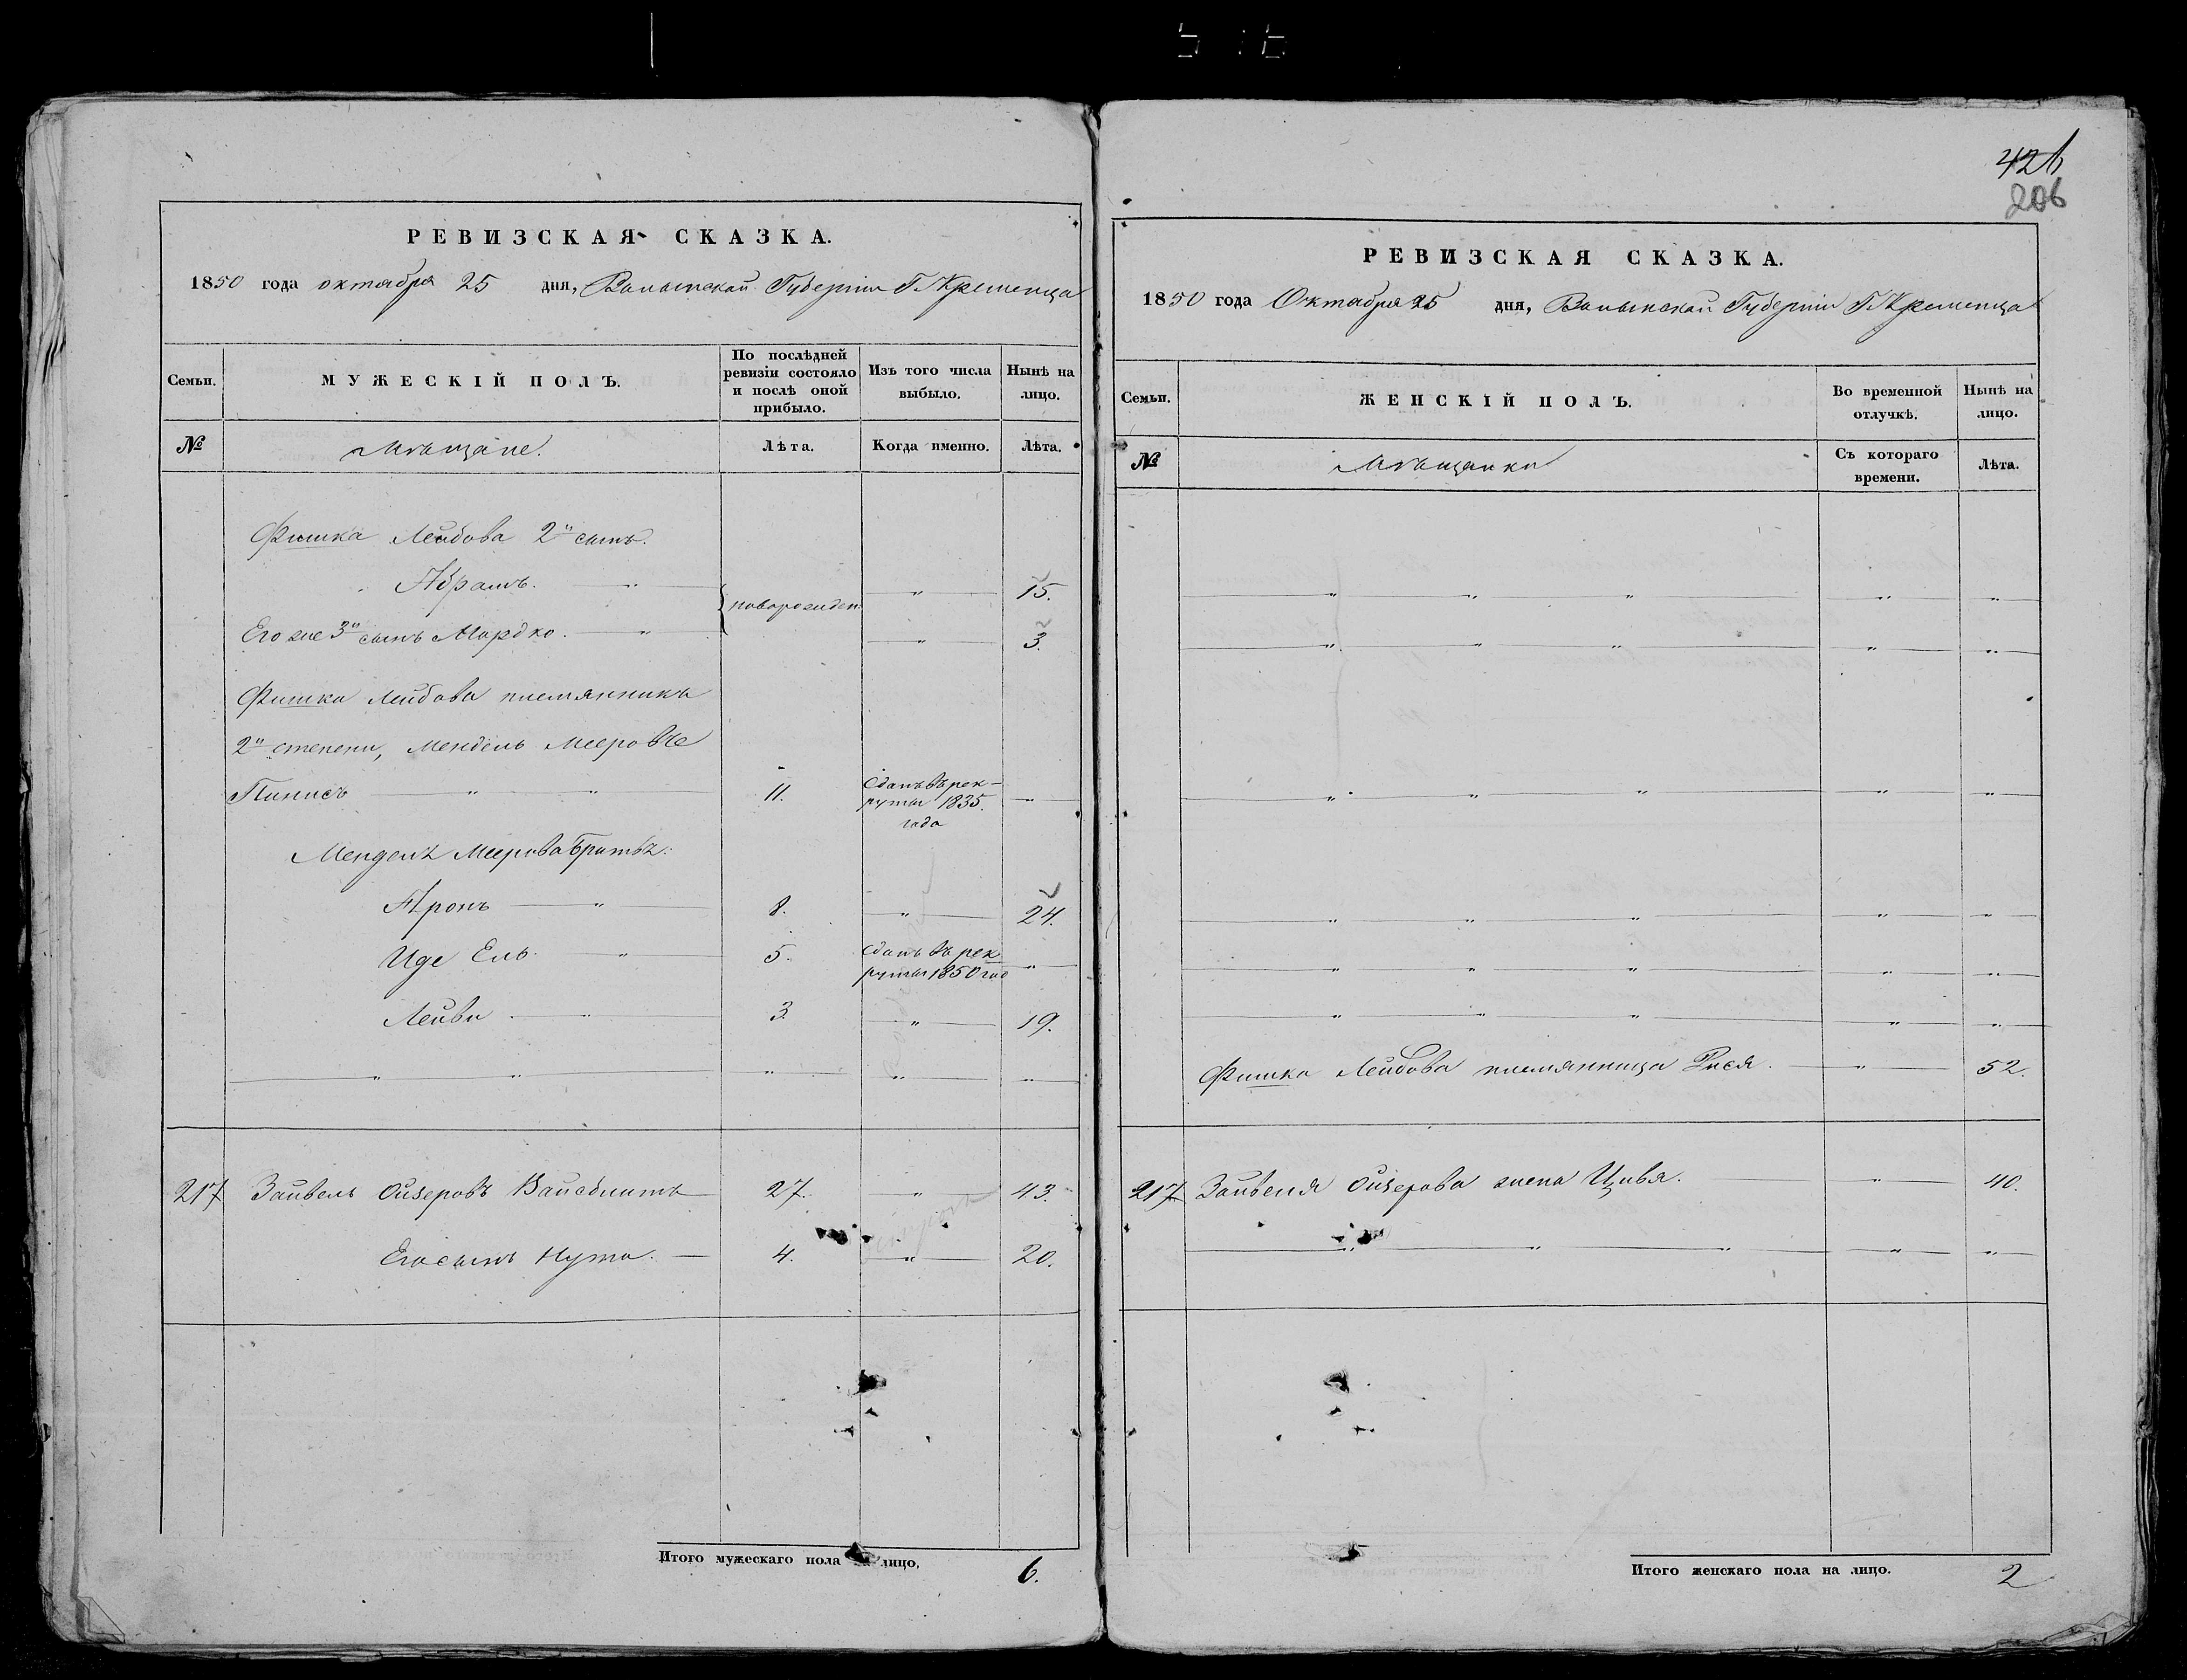 426
206
РЕВИЗСКАЯ СКАЗКА.
1850 года октября 25 дня, Волынской Губернии Г. Кременца
Семьи. МУЖЕСКІЙ ПОЛЪ. По послѣдней ревизіи состояло и послѣ оной прибыло. Изъ того числа выбыло. Нынѣ на лицо.
№ Мѣщане. Лѣта. Когда именно. Лѣта.
Фишка Лейбова 2й сынъ.
Абрамъ. " новорожден. " 15.
Его же 3й сынъ Мордко. " " 3.
Фишка Лейбова племянника
2й степени, Мендель Мееровъ
Пинисъ " " 11. Сданъ въ рекруты 1835. года "
Мендель Меерова братья:
Аронъ " 8. " 24.
Иде Ель. " 5. Сданъ въ рекруты 1850 год "
Лейви " 3. " 19.
" " " " "
217 Зайвель Ойзеровъ Вайсблитъ 27. " 43.
Его сынъ Нута. 4. " 20.
Итого мужескаго пола на лицо. 6.
РЕВИЗСКАЯ СКАЗКА.
1850 года Октября 25 дня, Волынской Губернии Г. Кременца
Семьи. ЖЕНСКІЙ ПОЛЪ. Во временной отлучкѣ. Нынѣ на лицо.
№ Мѣщанки Съ котораго времени. Лѣта.
" " " " "
" " " " "
" " " " "
" " " " "
" " " " "
" " " " "
Фишка Лейбова племянница Рися. " 52.
217 Зайвеля Ойзерова жена Цивя. " 40.
" " " " "
Итого женскаго пола на лицо. 2